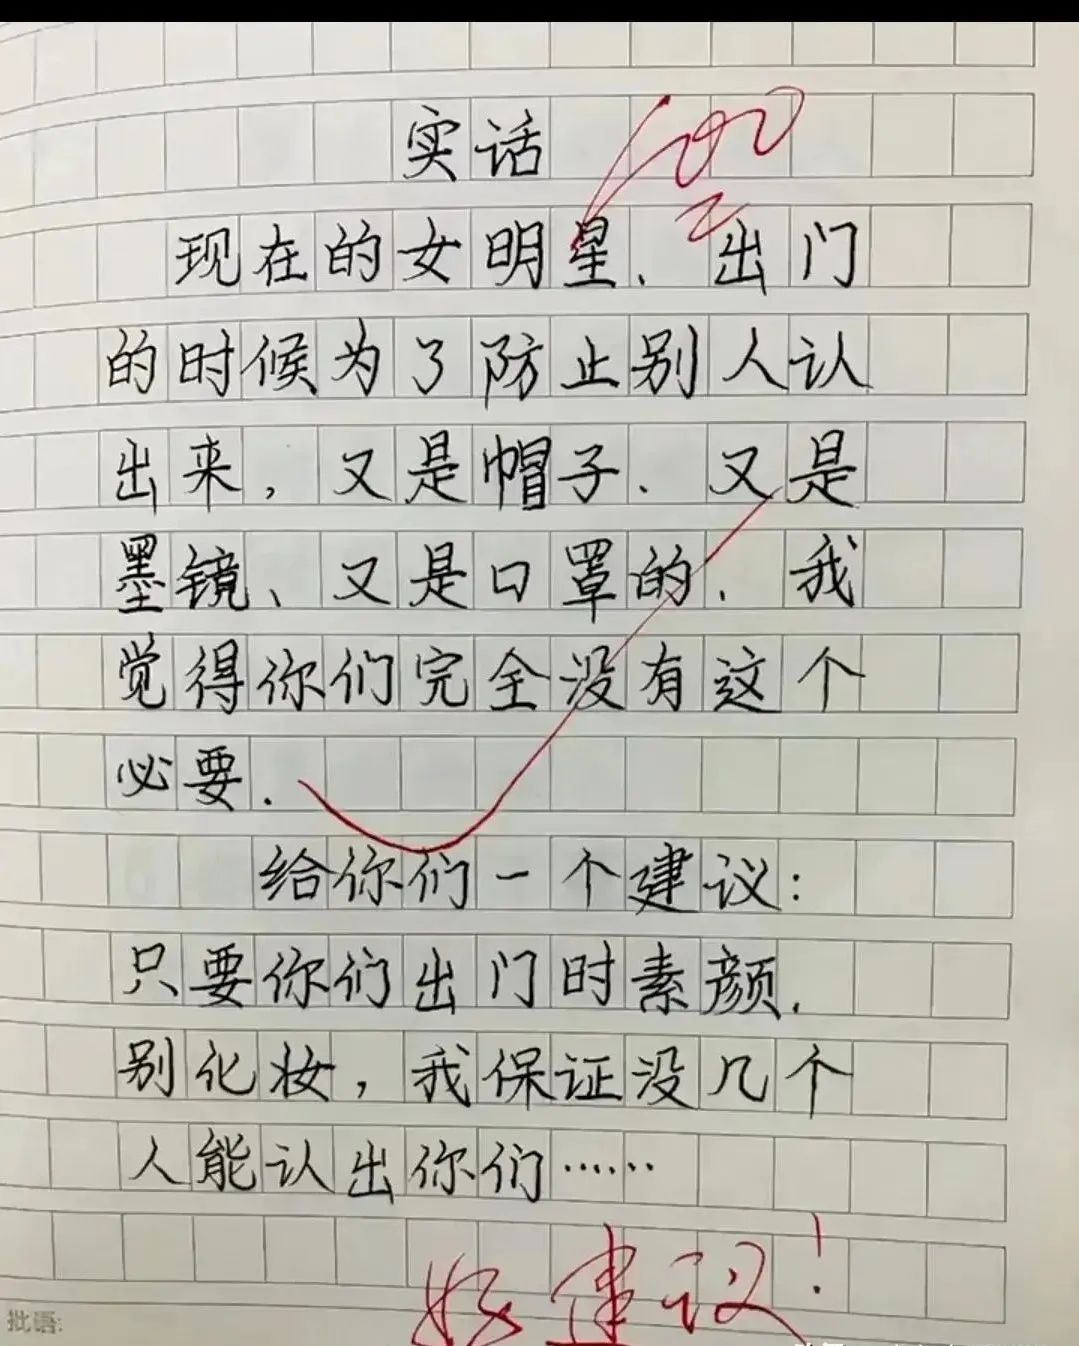 实话
100
现在的女明星. 出门
的时候为了防止别人认
出来, 又是帽子. 又是
墨镜、又是口罩的. 我
觉得你们完全没有这个
必要.
给你们一个建议:
只要你们出门时素颜.
别化妆, 我保证没几个
人能认出你们……
好建议!
批语: